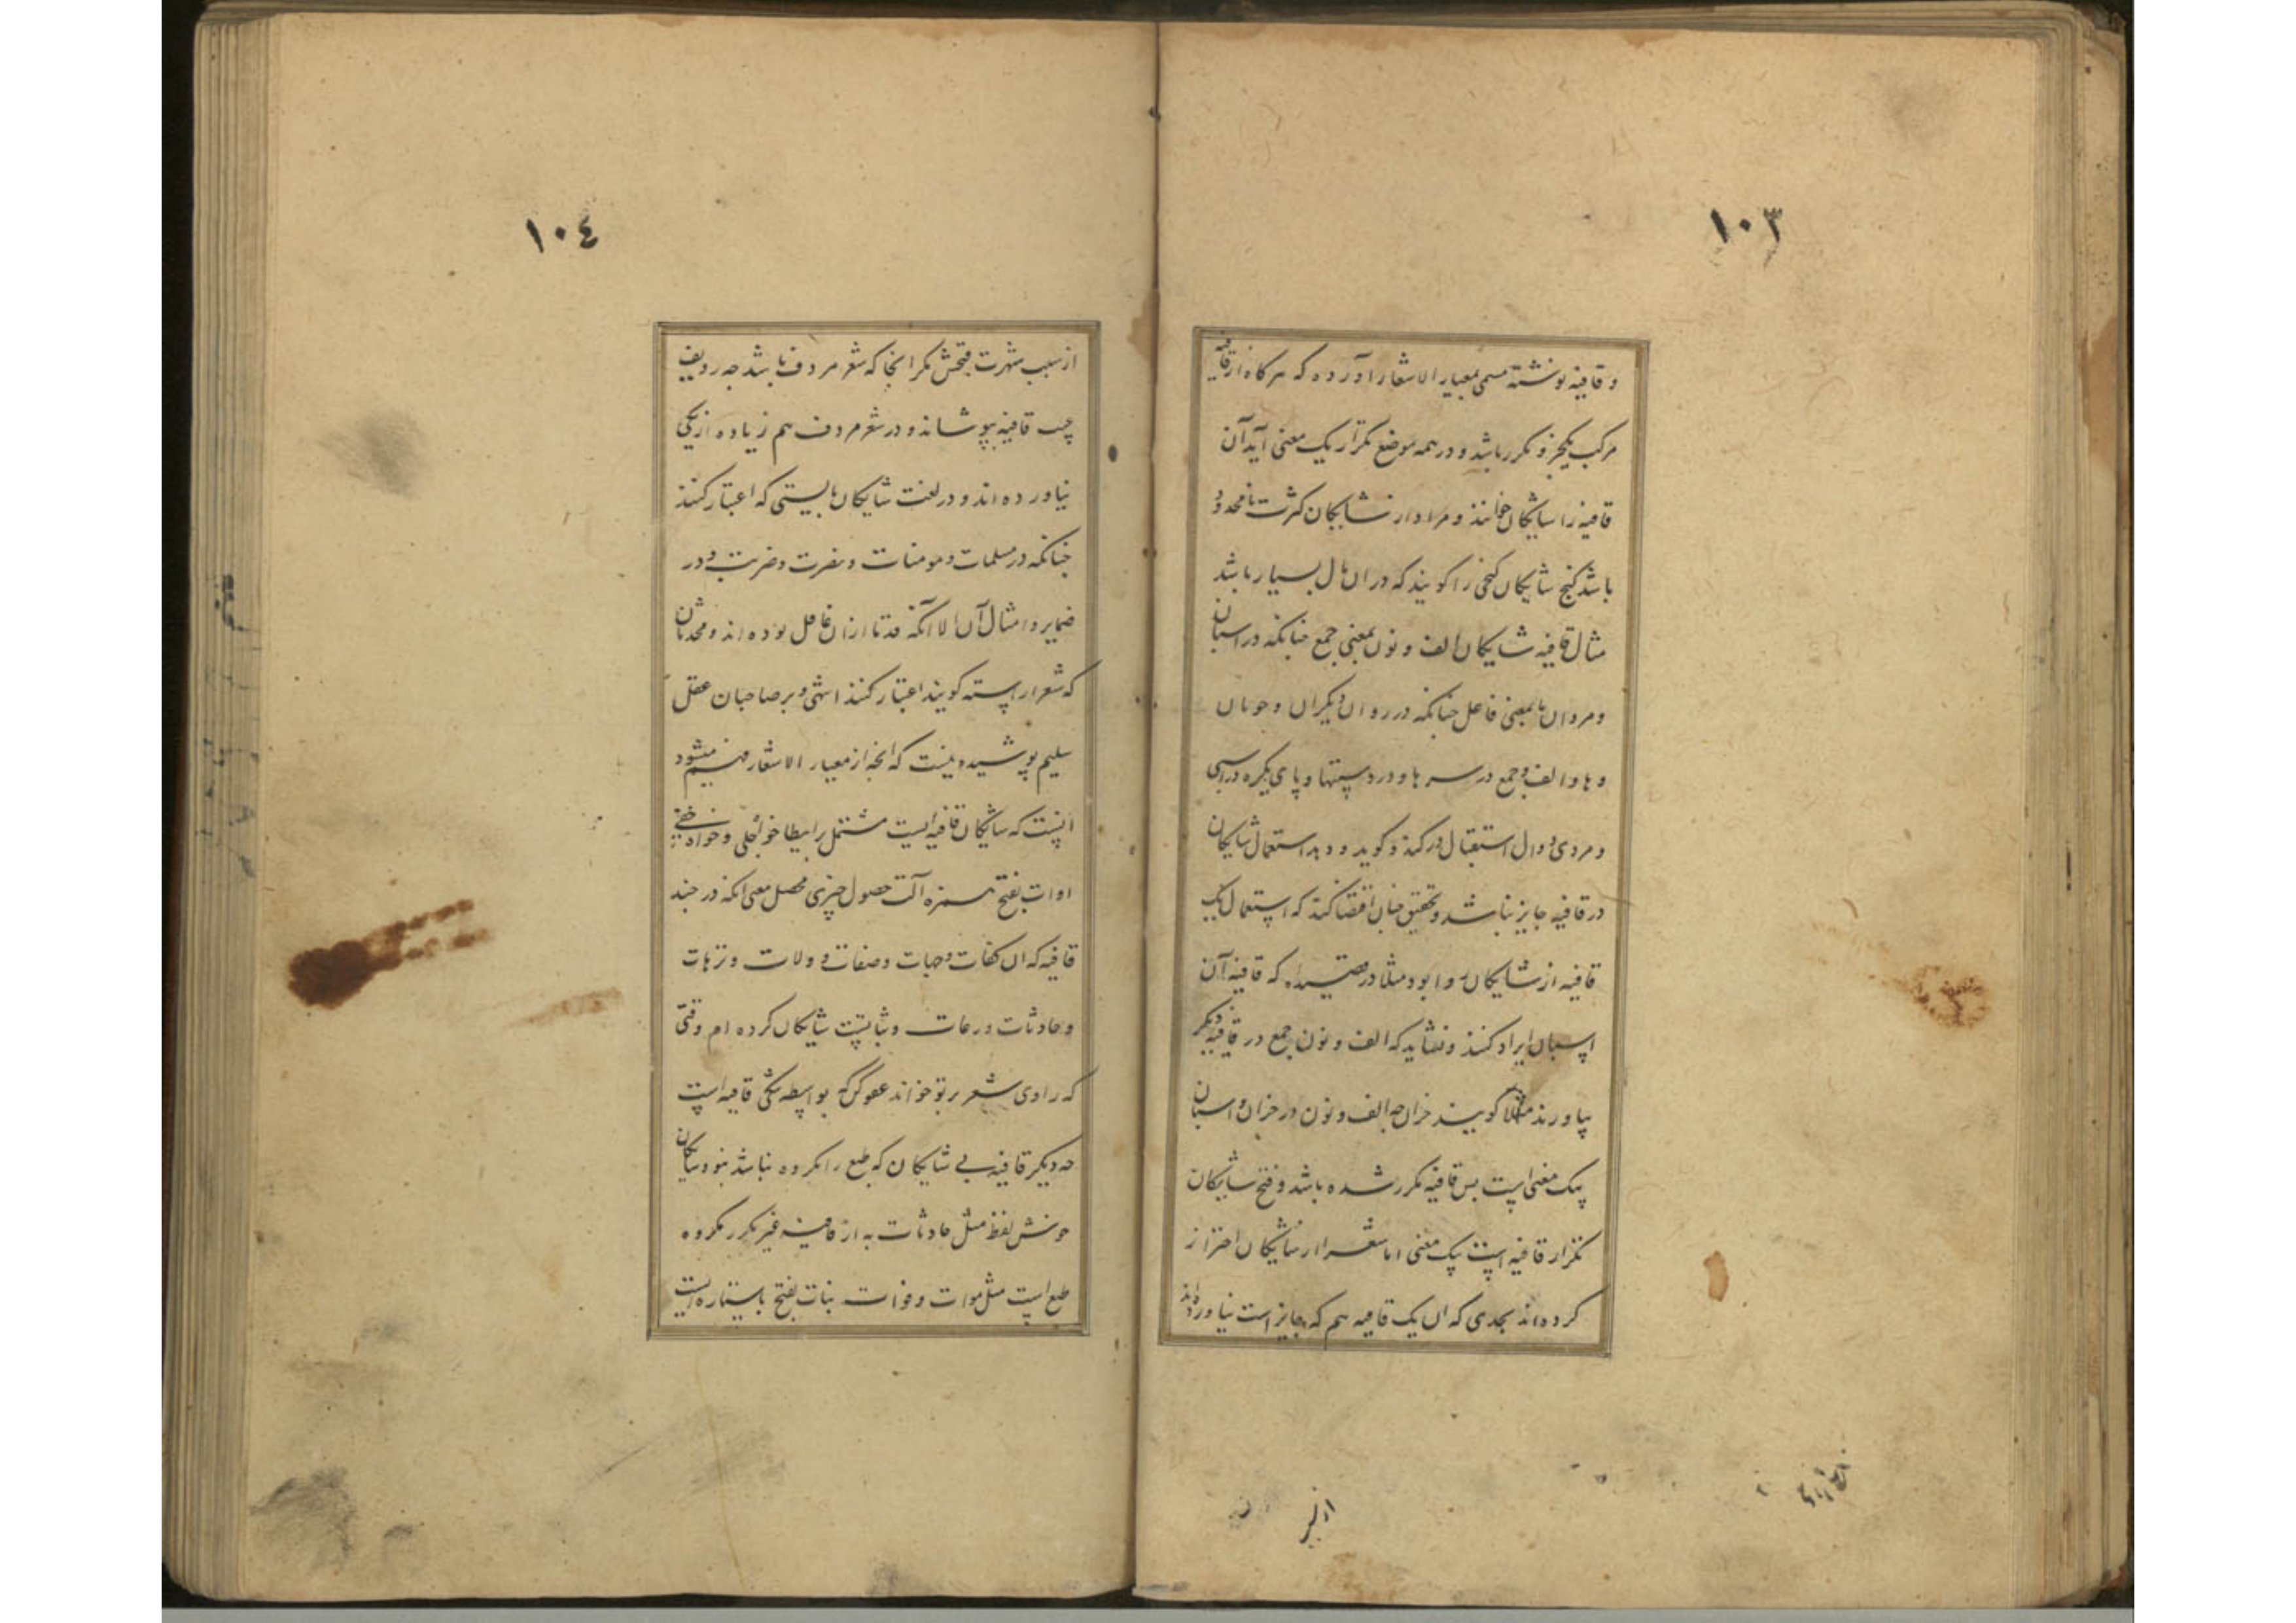 ١٠٣
و قافیه نوشته مسمی بمعیار الاشعار آورده که هرگاه از قافیه
مرکب یکجزو مکرر باشد و در همه موضع تکرار یک معنی آید آن
قافیه را شایکان خوانند و مراد از شایکان کثرت نامحدود
باشد کنج شایکان کنجی را کویند که در ان مال بسیار باشد
مثال قافیه شایکان الف و نون بمعنی جمع چنانکه در اسبان
و مردان یا بمعنی فاعل چنانکه در روان دیکران و جویان
و ها و الف جمع در سرها و در دستها و یای نکره در اسبی
و مردی و دال استقبال در کند و کوید و دهد استعمال شایکان
در قافیه جایز نباشد و تحقیق چنان اقتضا کند که استعمال یک
قافیه از شایکان روا بود مثلا در قصیده که قافیه آن
اسبان ایراد کنند و نشاید که الف و نون جمع در قافیه دیکر
بیاورند مثلا کویند خران چه الف و نون در خران و اسبان
یک معنی است پس قافیه مکرر شده باشد و قبح شایکان
تکرار قافیه است بیک معنی اما شعرا از شایکان احتراز
کرده اند بحدی که ان یک قافیه هم که جایز است نیاورده اند
از سبب
١٠٤
از سبب شهرت قبحش مکر انجا که شعر مردف باشد چه ردیف
عیب قافیه بپوشاند و در شعر مردف هم زیاده از یکی
نیاورده اند و در لغت شایکان بایستی که اعتبار کنند
چنانکه در مسلمات و مومنات و نصرت و ضربت و در
ضمایر و امثال آن الا آنکه قدما از ان غافل بوده اند و محدثان
که شعر اراسته کویند اعتبار کنند انتهی و بر صاحبان عقل
سلیم پوشیده نیست که انچه از معیار الاشعار فهم میشود
اینست که شایکان قافیه ایست مشتمل بر ایطا خواه جلی و خواه خفی
ادات بفتح همزه آلت حصول چیزی محصل معنی انکه در چند
قافیه که ان کفات و حیات و صفات و ولات و ترهات
و حادثات و رعات و ثابتست شایکان کرده ام وقتی
که راوی شعر بر تو خواند عفو کن که بواسطه تنکی قافیه است
چه دیکر قافیه بی شایکان که طبع را مکروه نباشد نبود شایکان
خوش لفظ مثل حادثات به از قافیه غیر مکرر مکروه
طبع است مثل موات و فوات بنات بفتح با ستاره ایست